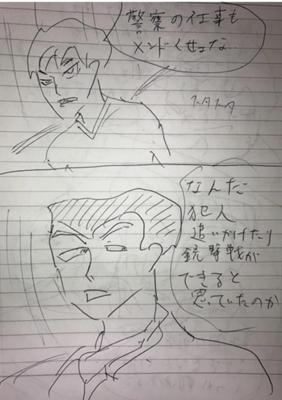 警察の仕事も
メンドくせェな
なんだ
犯人
追いかけたり
銃撃戦が
できると
思っていたのか